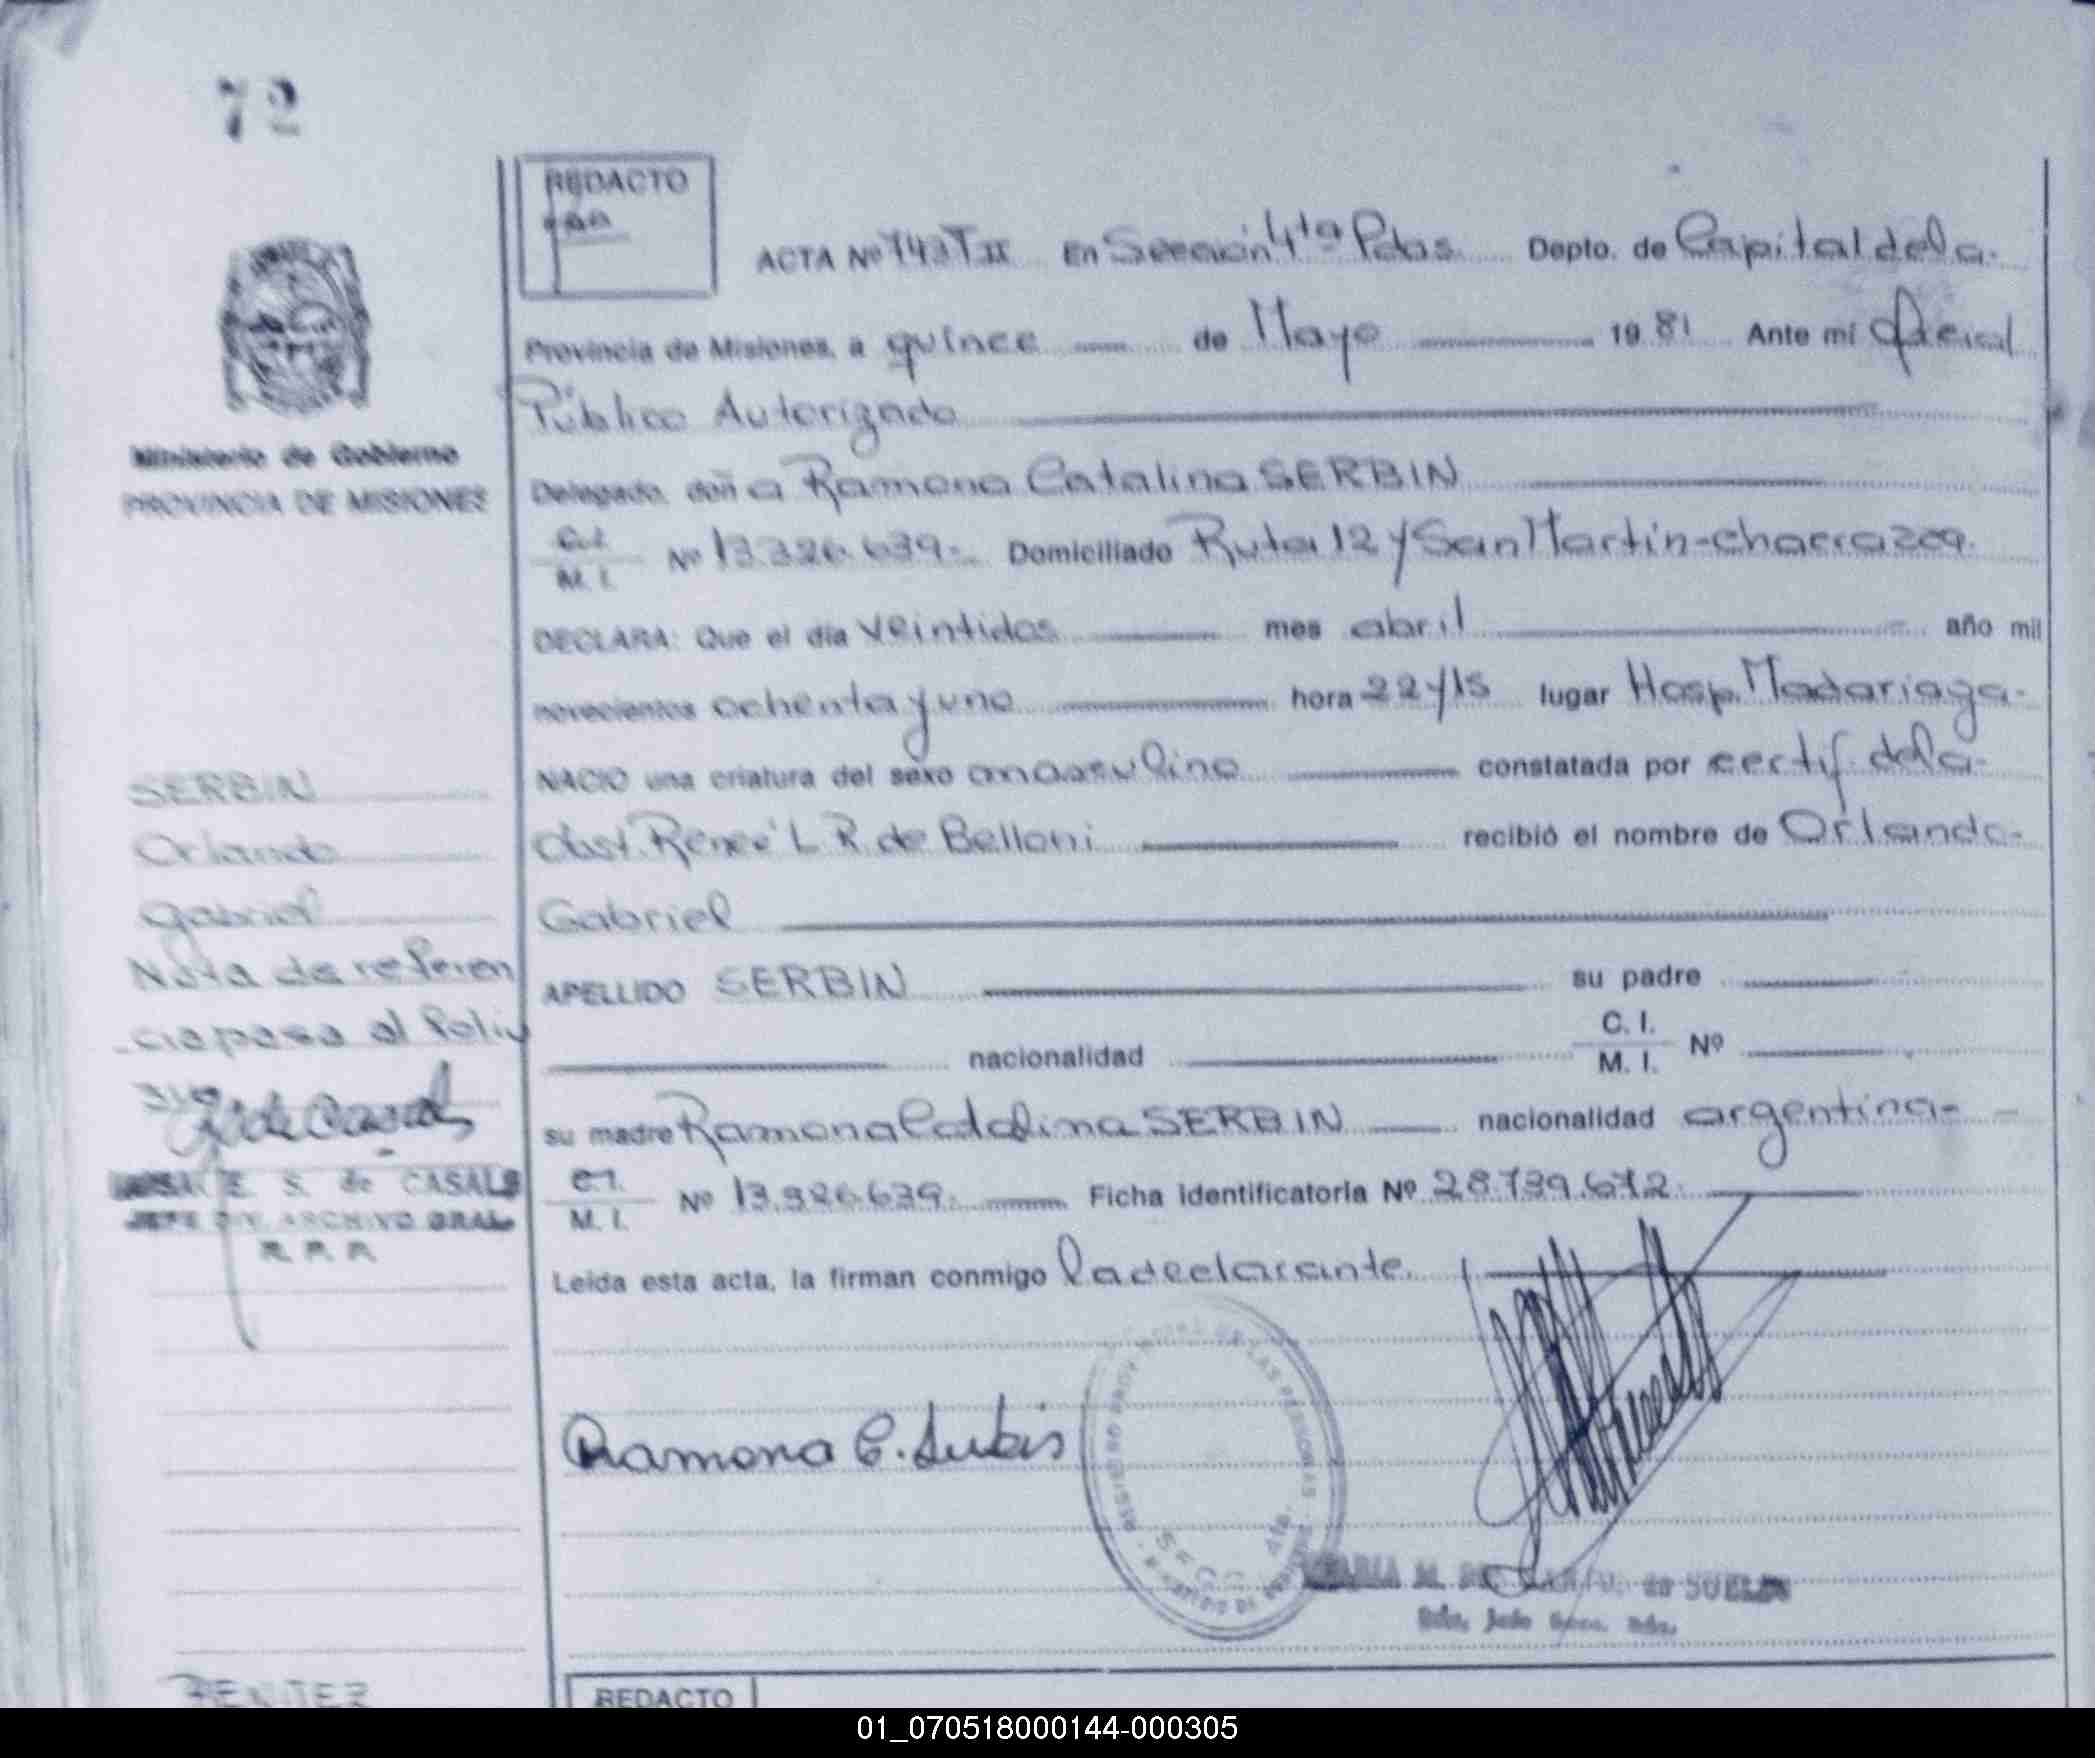 72
REDACTO
ACTA Nº 743 T II En Sección 4ta Pdas. Depto. de Capital de la
Provincia de Misiones, a quince de Mayo 19 81 Ante mí Oficial
Público Autorizado
Ministerio de Gobierno
PROVINCIA DE MISIONES
Delegado, doña Ramona Catalina SERBIN
C.I. M. I. Nº 13.326.639.- Domiciliado Ruta 12 y San Martín-chacra 209.
DECLARA: Que el día veintidos mes abril año mil
novecientos ochenta y uno hora 22 y 15 lugar Hosp. Madariaga-
NACIO una criatura del sexo masculino constatada por certif. de la
Obst. Reneé L R. de Belloni recibió el nombre de Orlando-
Gabriel
APELLIDO SERBIN su padre
nacionalidad C. I. M. I. Nº
su madre Ramona Catalina SERBIN nacionalidad argentina-
M. I. Nº 13.326.639. Ficha identificatoria Nº 28.739.672.
Leída esta acta, la firman conmigo la declarante.
SERBIN
Orlando
Gabriel
Nota de referen
cia pasa al folio
310
E. S. de CASALS
JEFE DIV. ARCHIVO GRAL
R. P. P.
Ramona C. Serbin
REGISTRO PROVINCIAL DE LAS PERSONAS
MARIA M. de SUELDO
BENITEZ
REDACTO
01_070518000144-000305